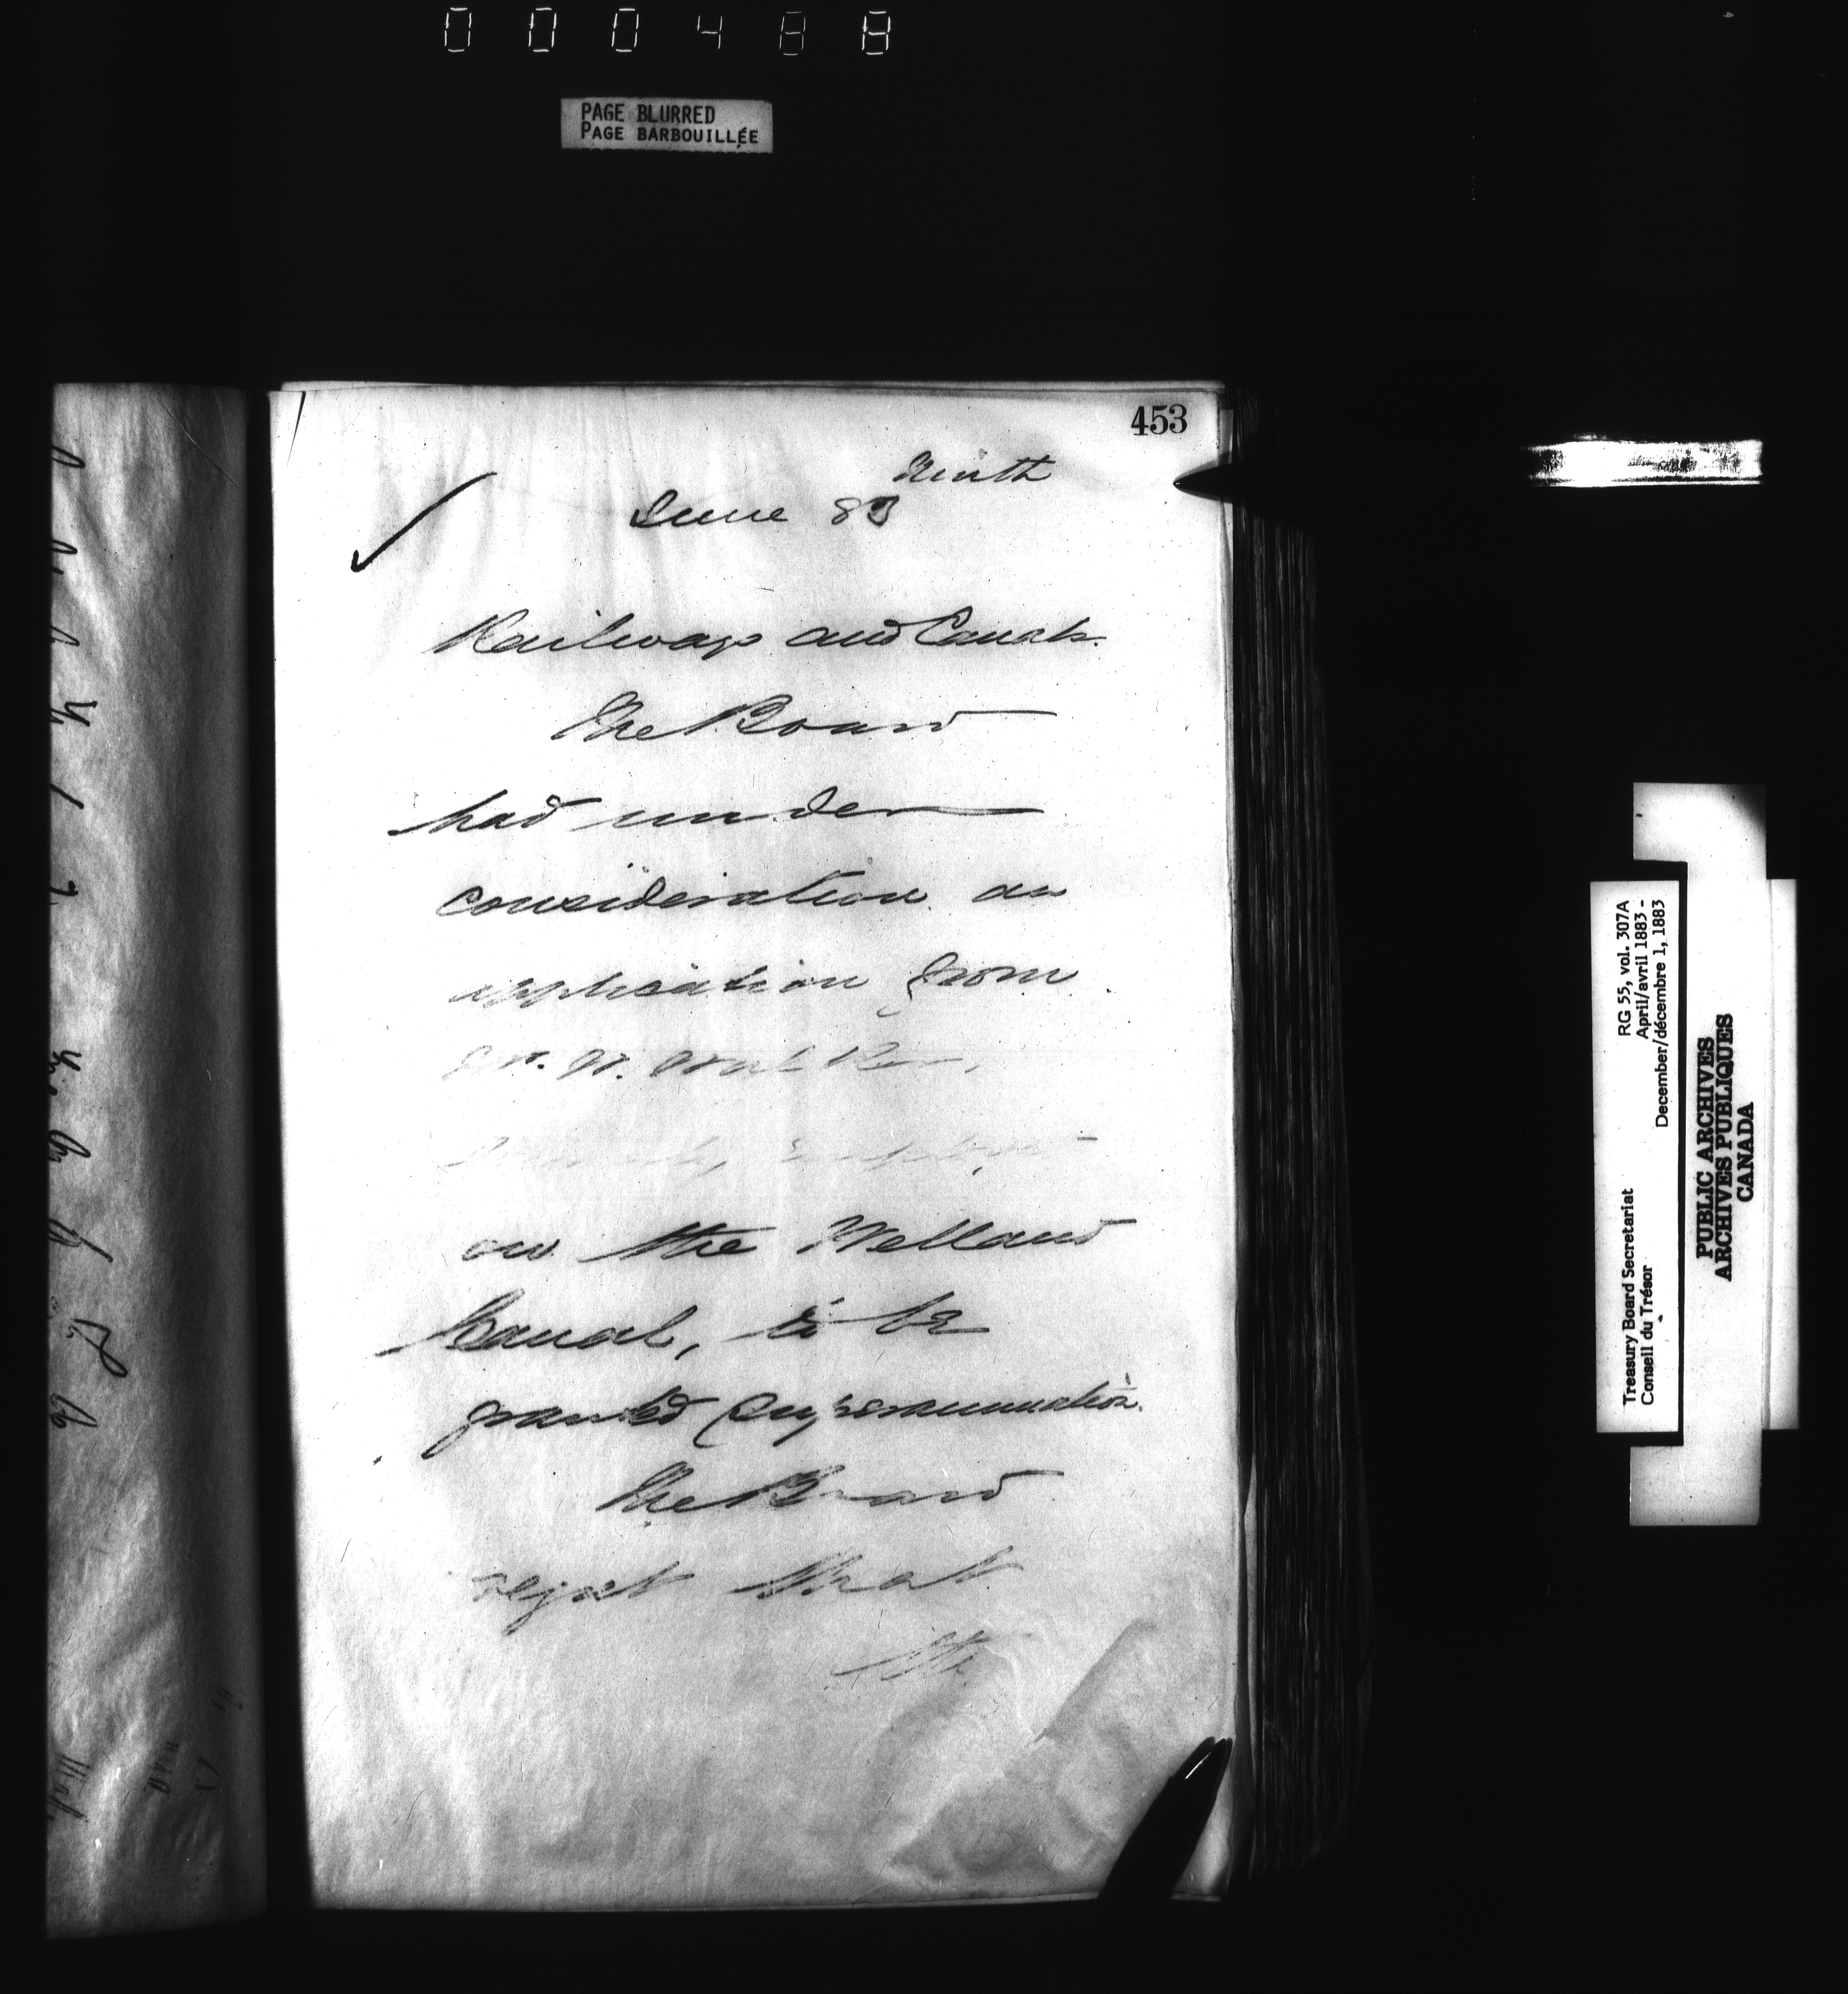 000488
PAGE BLURRED
PAGE BARBOUILLÉE
453
Ninth
June 83
Railways and Canals.
The Board
had under
consideration an
application from
Walker,
formerly employed
on the Welland
Canal, to be
granted Superannuation.
The Board
regret that
the
RG 55, vol. 307A
April/avril 1883 -
December/décembre 1, 1883
Treasury Board Secretariat
Conseil du Trésor
PUBLIC ARCHIVES
ARCHIVES PUBLIQUES
CANADA